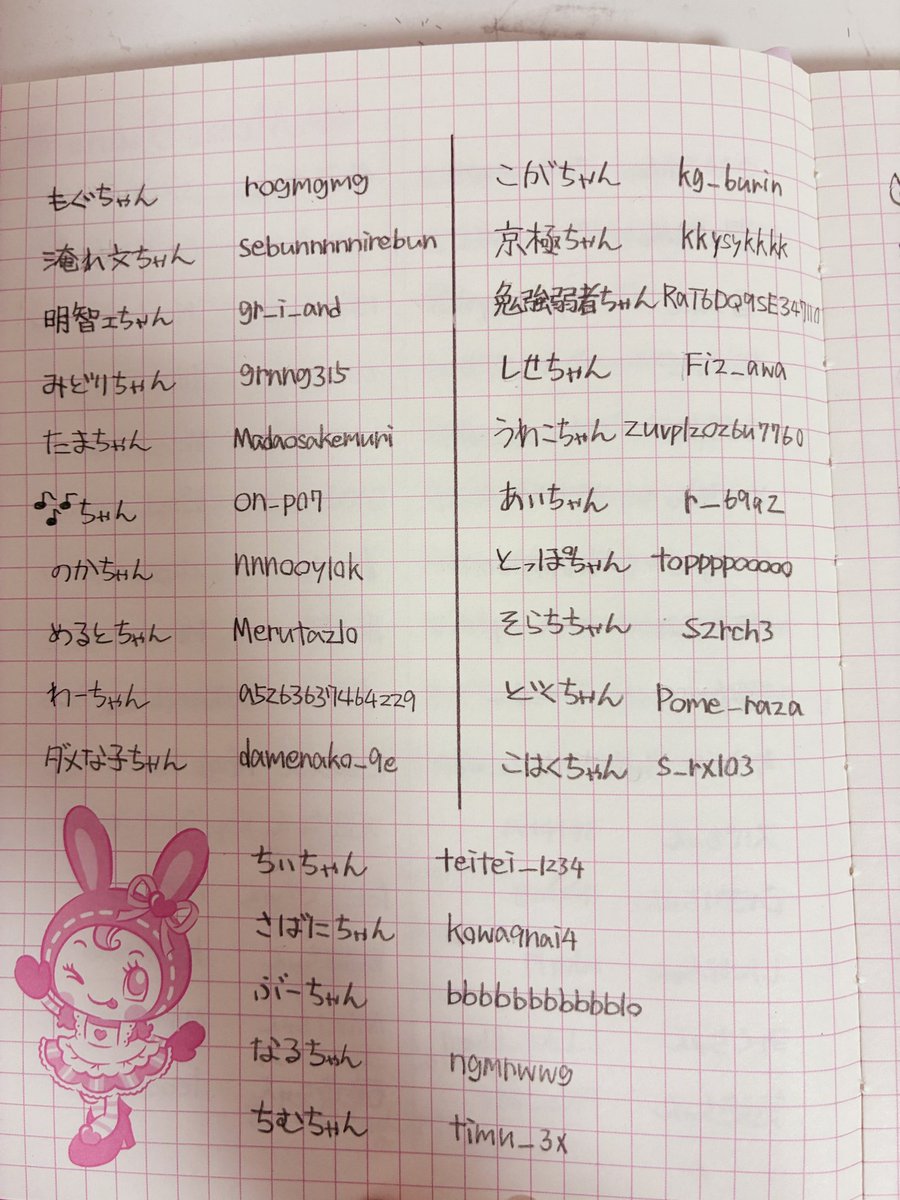 もぐちゃん rogmgmg
淹れ文ちゃん sebunnnnnirebun
明智ェちゃん gr_i_and
みどりちゃん grnng315
たまちゃん Madaosakemuri
♪♪♪ちゃん on_p07
のかちゃん nnnooy10k
めるとちゃん Merutaz10
わーちゃん a52636374642​29
ダメな子ちゃん damenako_9e
こがちゃん kg_burin
京極ちゃん kkysykkkk
勉強弱者ちゃん
しせちゃん Fiz_awa
うわこちゃん zuvplzozbu7760
あいちゃん r_69a2
とっぽちゃん toppppooooo
そらちちゃん szrch3
どくちゃん Pome_raza
こはくちゃん s_rx103
ちぃちゃん teitei_1234
さばにちゃん kowa9nai4
ぶーちゃん bbbbbbbbbbbb10
なるちゃん ngmrwwg
ちむちゃん timu_3x